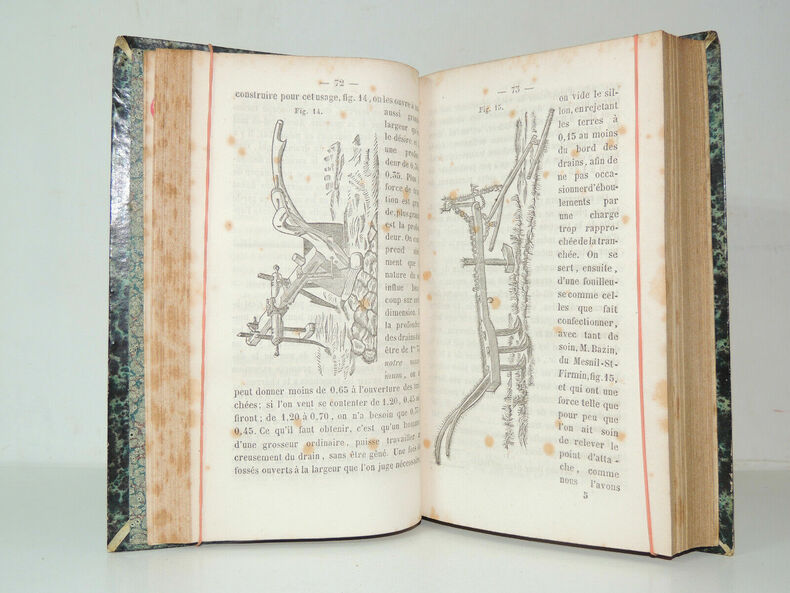 — 72 —
construire pour cet usage, fig. 14, on les ouvre à
Fig. 14.
aussi
largeur
le désire, et
une
deur de
0,35.
force de
tion est
de, plus
est la
deur. On
prend
ment que
nature du
influe
coup sur
dimension.
la
des drains
être de 1m
notre
imum, on
peut donner moins de 0.65 à l'ouverture des
chées; si l'on veut se contenter de 1.20, 0.45
firont; de 1.20 à 0.70, on n'a besoin que
0.45. Ce qu'il faut obtenir, c'est qu'un
d'une grosseur ordinaire, puisse travailler
creusement du drain, sans être gêné. Une fois
fossés ouverts à la largeur que l'on juge nécessaire
— 73 —
Fig. 15.
on vide le sil-
lon, en rejetant
les terres à
0,15 au moins
du bord des
drains, afin de
ne pas occa-
sionner d'ébou-
lements par
une charge
trop rappro-
chée de la tran-
chée. On se
sert, ensuite,
d'une fouilleu-
se comme cel-
les que fait
confectionner,
avec tant de
soin, M. Bazin,
du Mesnil-St-
Firmin, fig. 15,
et qui ont une
force telle que
pour peu que
l'on ait soin
de relever le
point d'atta-
che, comme
nous l'avons
5